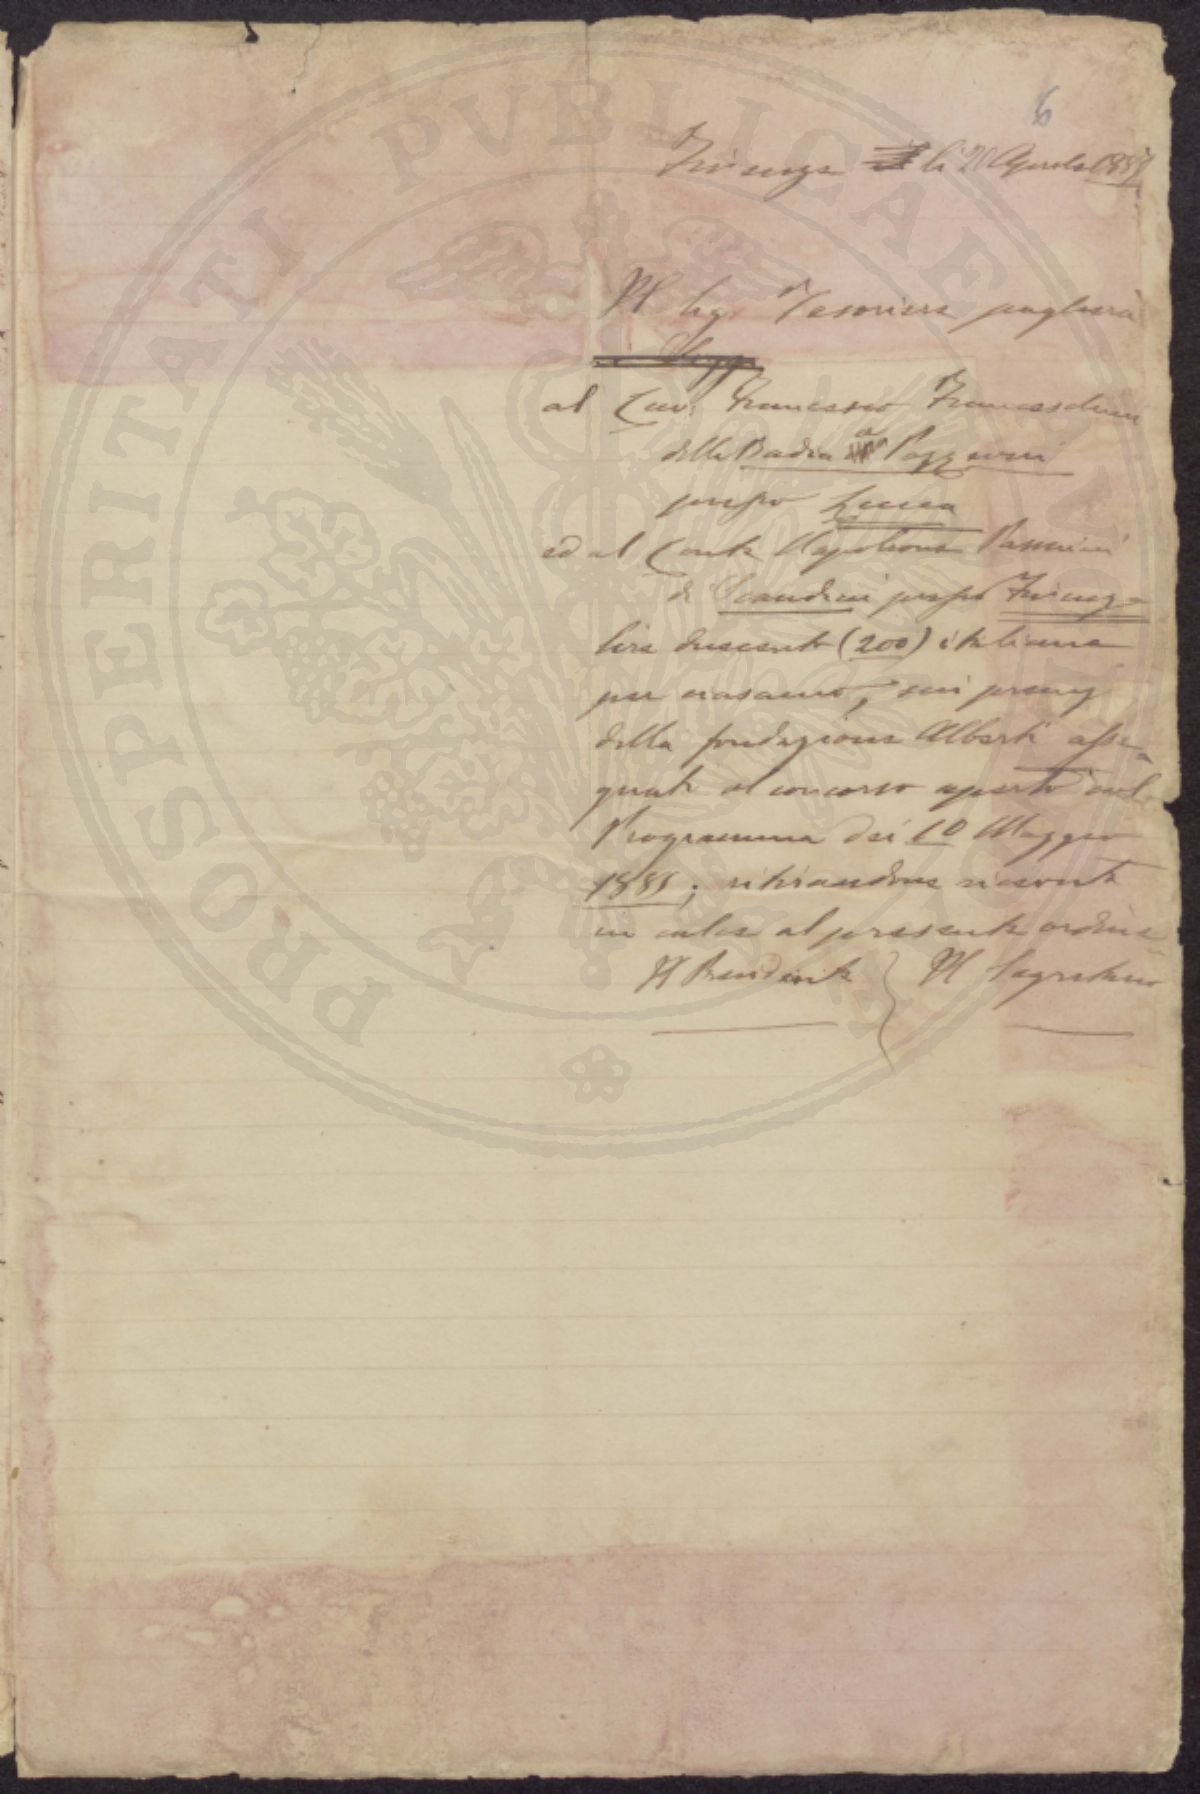 6
Firenze li 20 Aprile 1887
Il Sig. Tesoriere pagherà
al Cav. Francesco Franceschini
della Badia a Pozzeveri
presso Lucca
ed al Conte Napoleone Passerini
di Scandicci presso Firenze
lire duecento (200) italiane
per ciascuno, sui premj
della fondazione Alberti asse-
gnati al concorso aperto col
Programma dei 10 Maggio
1885; ritirandone ricevute
in calce al presente ordine
Il Presidente Il Segretario
PROSPERITATI PVBLICAE